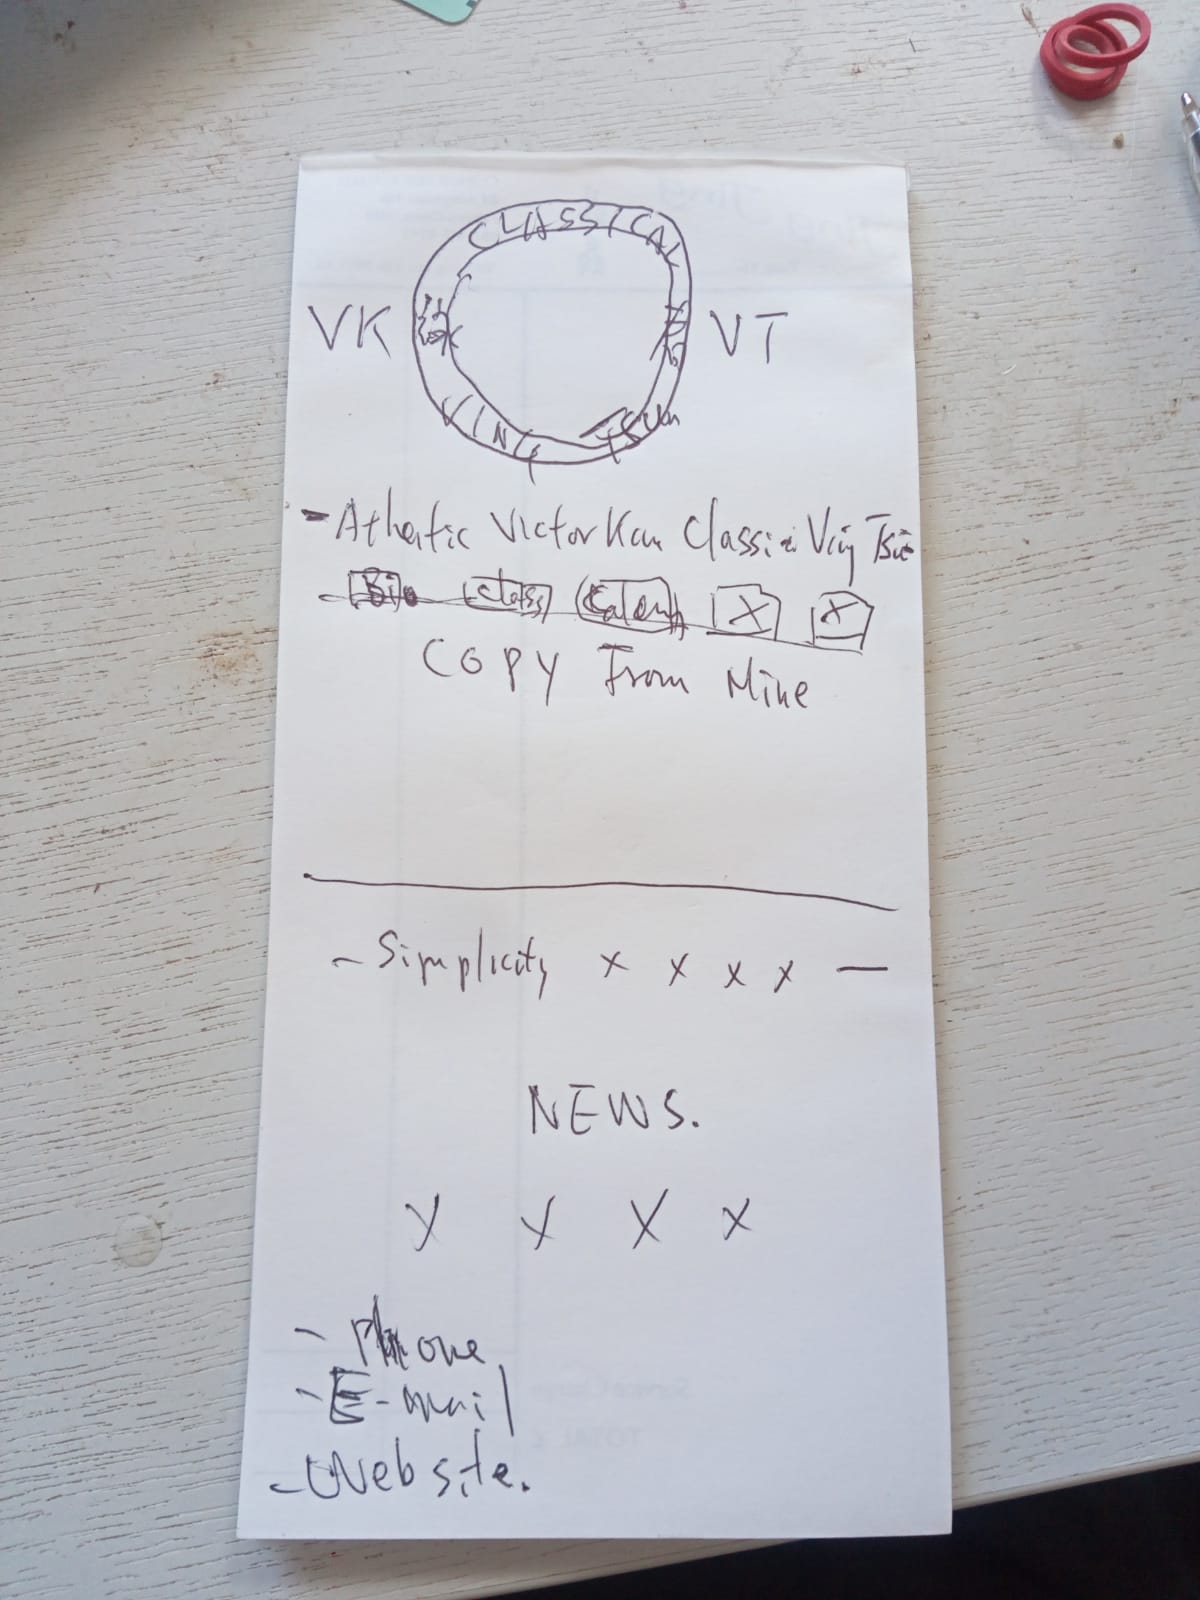 CLASSICAL
VK VT
VING TSUN
- Athentic Victor Kan Classic Ving Tsun
Bio Class X X
COPY From Mine
- Simplicity x x x x —
NEWS.
X X X X
- Phone
- E-mail
- Website.